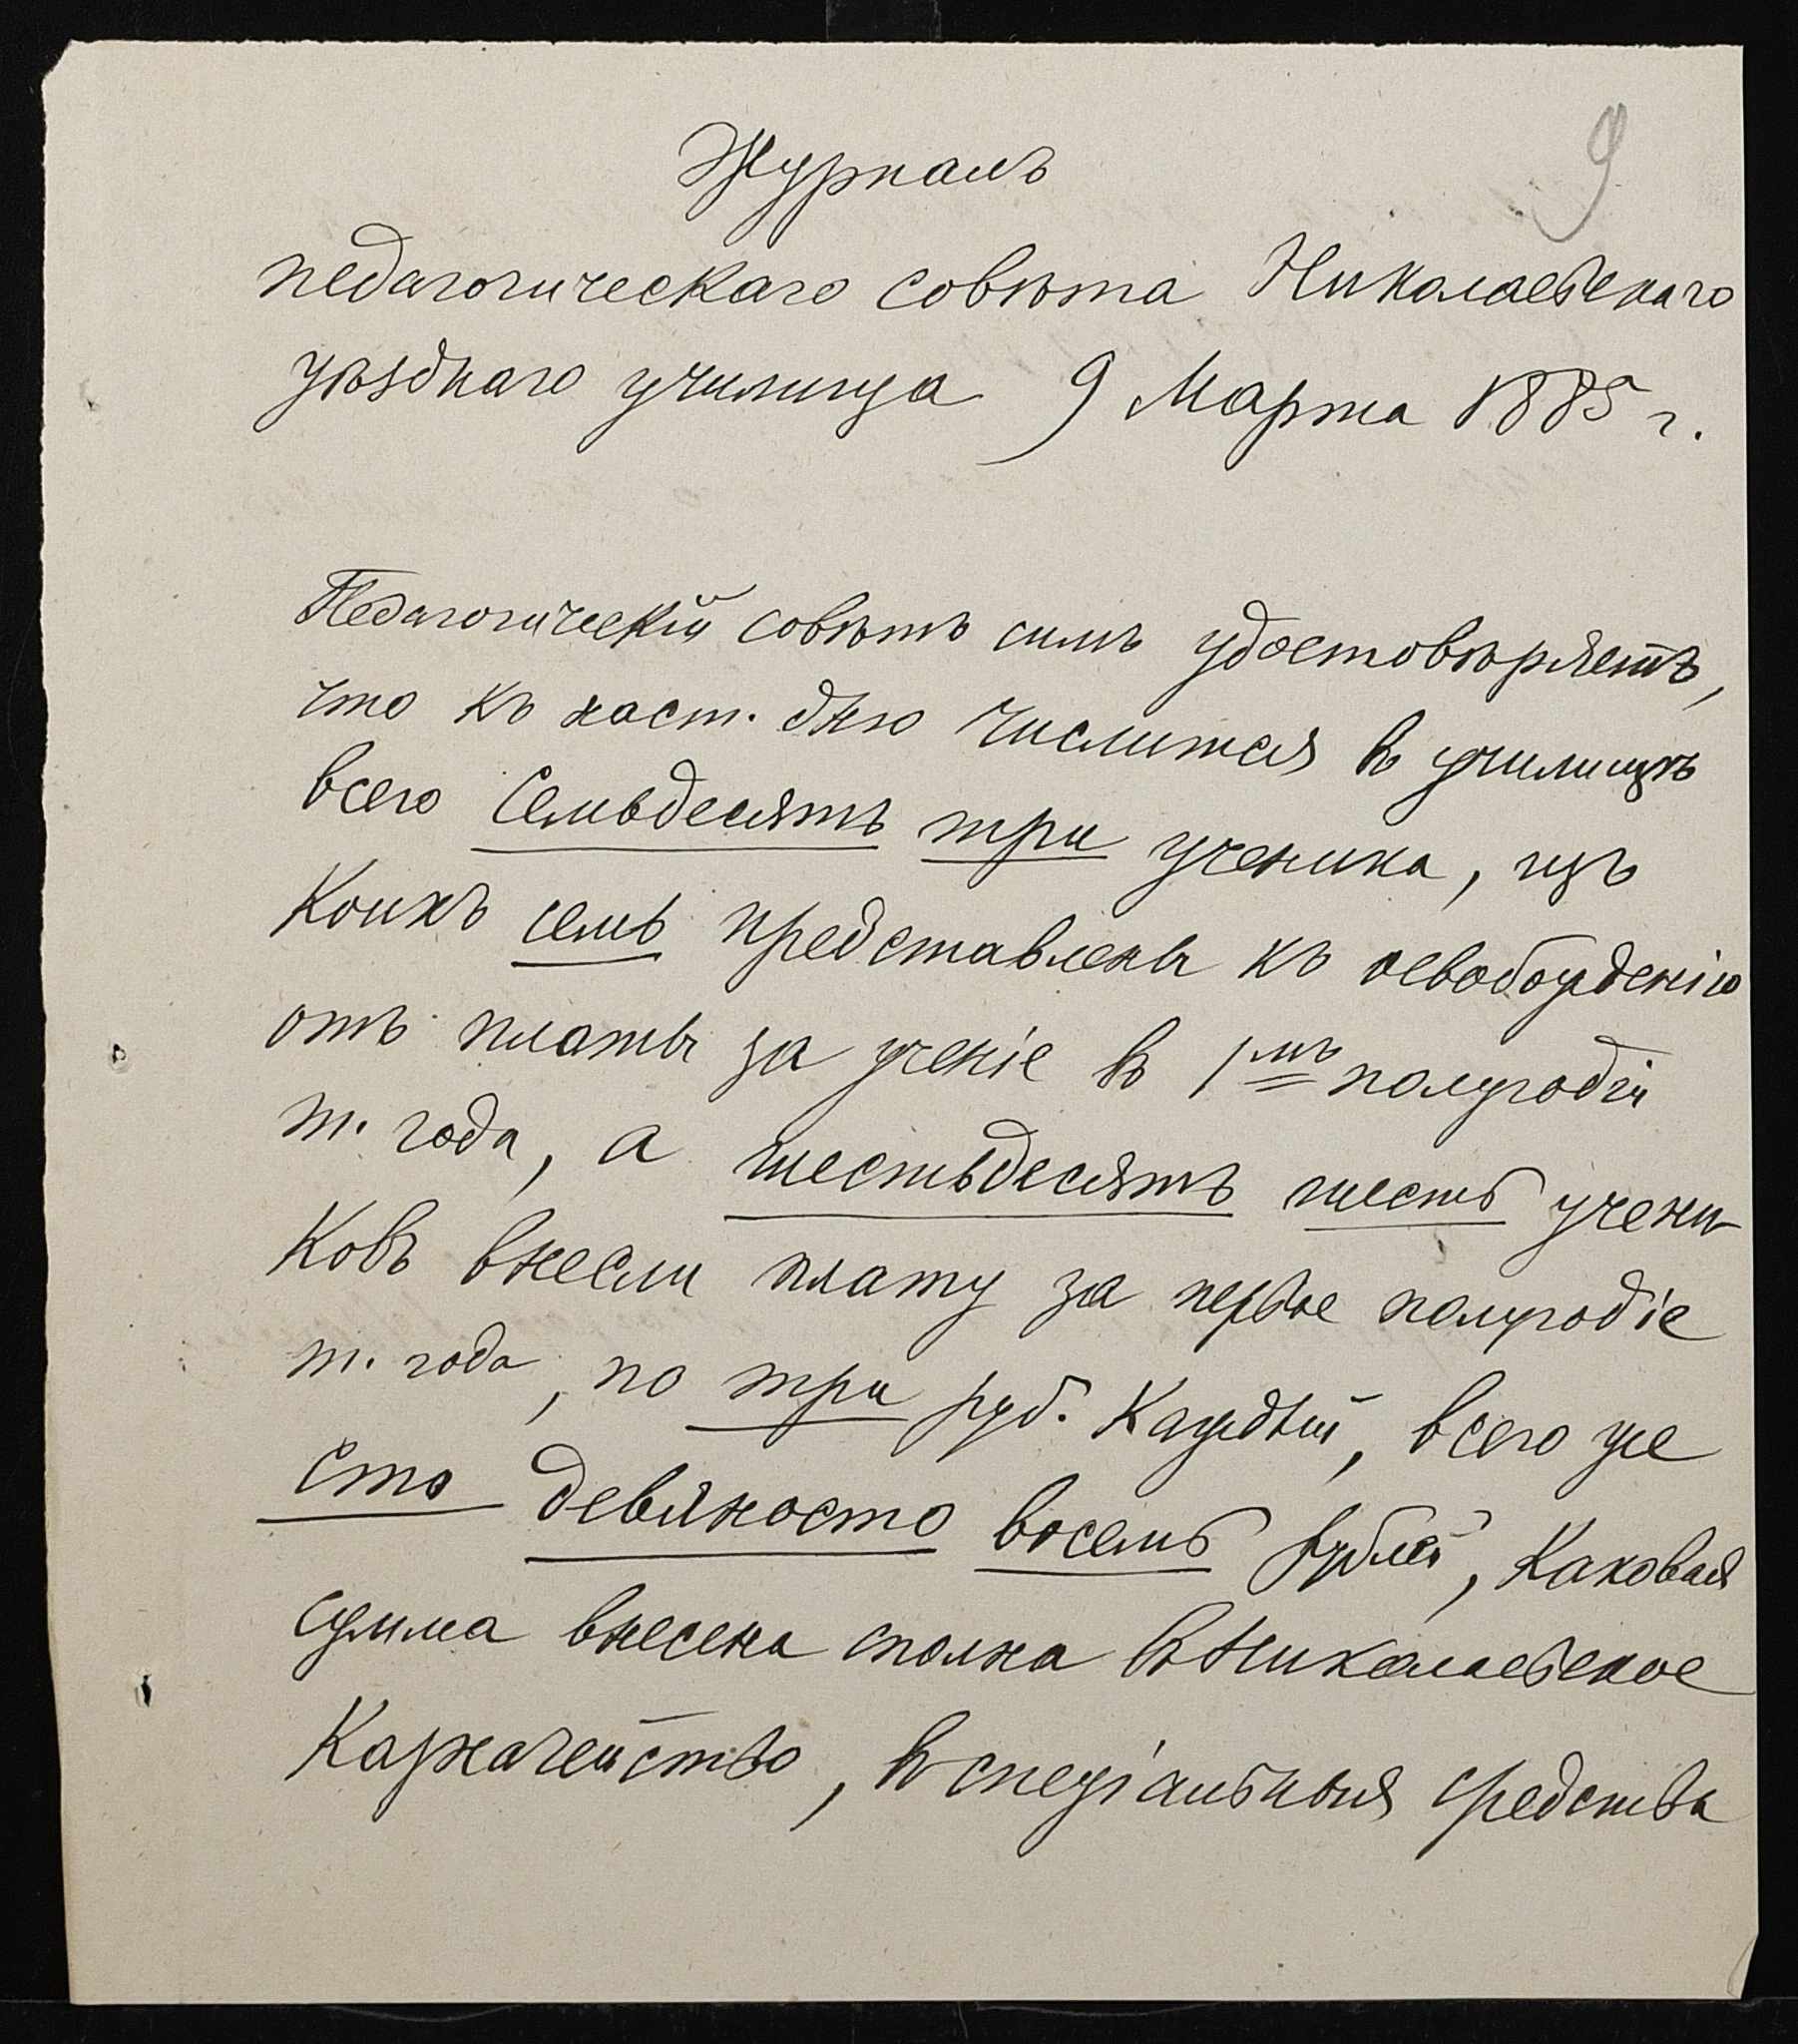 9
Журналъ
педагогическаго совѣта Николаевскаго
уѣзднаго училища 9 Марта 1885 г.
Педагогическій совѣтъ симъ удостовѣряетъ,
что къ наст. дню числится въ училищѣ
всего семьдесятъ три ученика, изъ
коихъ семь представлены къ освобожденію
отъ платы за ученіе въ 1мъ полугодіи
т. года, а шестьдесятъ шесть учени-
ковъ внесли плату за первое полугодіе
т. года, по три руб. каждый, всего же
сто девяносто восемь рублей, каковая
сумма внесена сполна въ Николаевское
Казначейство, въ спеціальныя средства